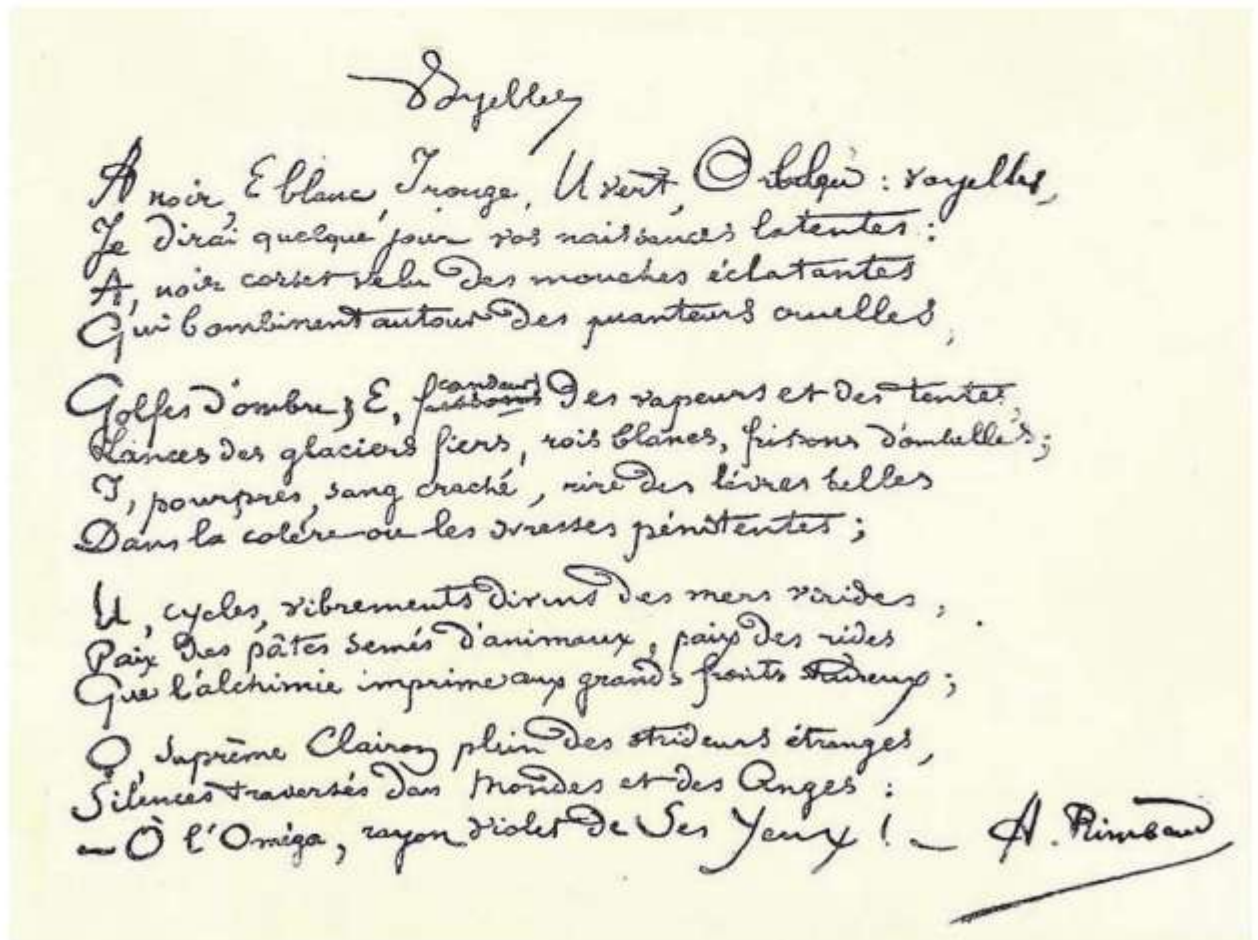 Voyelles
A noir, E blanc, I rouge, U vert, O bleu : voyelles,
Je dirai quelque jour vos naissances latentes :
A, noir corset velu des mouches éclatantes
Qui bombinent autour des puanteurs cruelles,
Golfes d'ombre ; E, candeurs des vapeurs et des tentes,
Lances des glaciers fiers, rois blancs, frissons d'ombelles ;
I, pourpres, sang craché, rire des lèvres belles
Dans la colère ou les ivresses pénitentes ;
U, cycles, vibrements divins des mers virides,
Paix des pâtis semés d'animaux, paix des rides
Que l'alchimie imprime aux grands fronts studieux ;
O, suprême Clairon plein des strideurs étranges,
Silences traversés des Mondes et des Anges :
— O l'Oméga, rayon violet de Ses Yeux ! —
A. Rimbaud